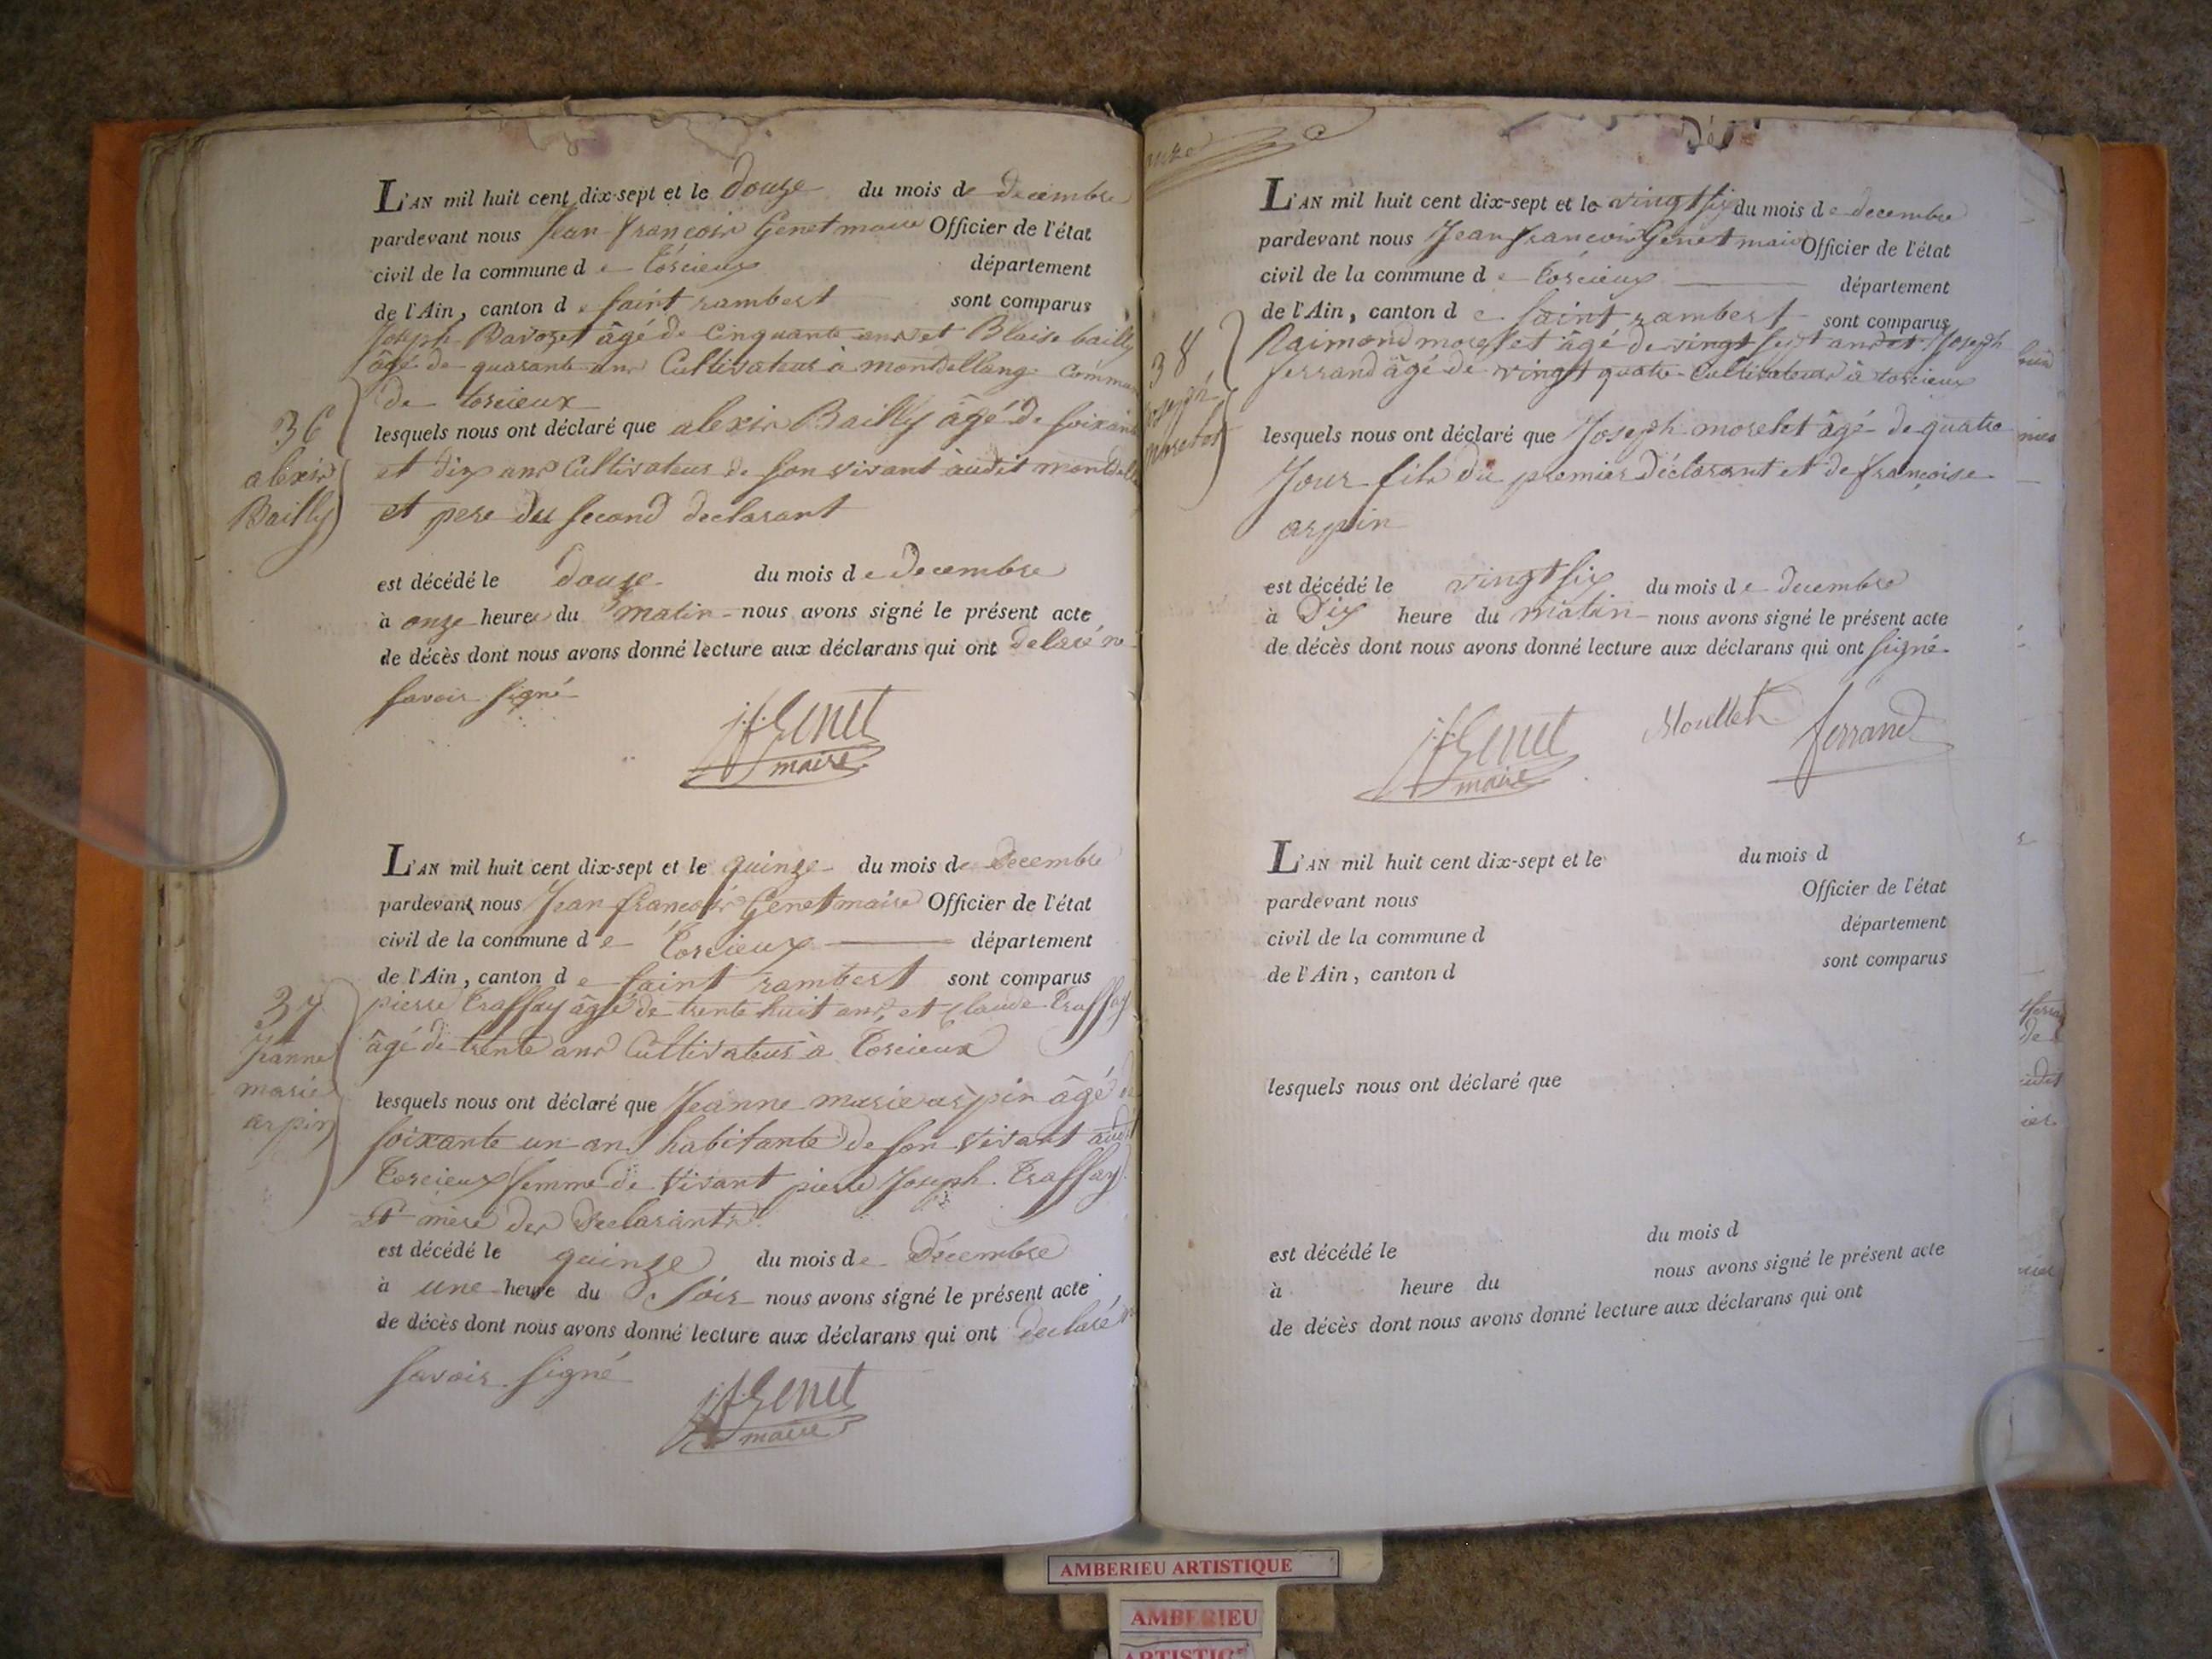 L'AN mil huit cent dix-sept et le douze du mois de decembre
pardevant nous Jean françois Genet maire Officier de l'état
civil de la commune de torcieux département
de l'Ain, canton de saint rambert sont comparus
Joseph Bavozet âgé de cinquante ans et Blaise bailly
âgé de quarante ans Cultivateurs à montdellang
de torcieux
36
lesquels nous ont déclaré que alexis Bailly âgé de soixante
alexis
et dix ans Cultivateur de son vivant audit
Bailly
et pere du second declarant
est décédé le douze du mois de decembre
à onze heures du matin nous avons signé le présent acte
de décès dont nous avons donné lecture aux déclarans qui ont delaré ne
savoir signé
jf Genet
maire
L'AN mil huit cent dix-sept et le quinze du mois de decembre
pardevant nous Jean françois Genet maire Officier de l'état
civil de la commune de torcieux département
de l'Ain, canton de saint rambert sont comparus
37
pierre traffay âgé de trente huit ans, et Claude traffay
Jeanne
âgé de trente ans Cultivateurs à torcieux
marie
lesquels nous ont déclaré que Jeanne marie arpin âgé de
arpin
soixante un ans habitante de son vivant audit
torcieux femme de vivant pierre Joseph traffay
et mère des declarants
est décédé le quinze du mois de décembre
à une heure du soir nous avons signé le présent acte
de décès dont nous avons donné lecture aux déclarans qui ont declaré ne
savoir signé
jf Genet
maire
L'AN mil huit cent dix-sept et le vingt six du mois de decembre
pardevant nous Jean françois Genet maire Officier de l'état
civil de la commune de torcieux département
de l'Ain, canton de saint rambert sont comparus
Raimond morellet âgé de vingt sept ans et Joseph
38
ferrand âgé de vingt quatre Cultivateurs à torcieux
Joseph
lesquels nous ont déclaré que Joseph morelet âgé de quatre
jour fils du premier déclarant et de françoise
arpin
est décédé le vingt six du mois de decembre
à dix heure du matin nous avons signé le présent acte
de décès dont nous avons donné lecture aux déclarans qui ont signé
jf Genet
maire
ferrand
L'AN mil huit cent dix-sept et le du mois d
pardevant nous Officier de l'état
civil de la commune d département
de l'Ain, canton d sont comparus
lesquels nous ont déclaré que
est décédé le du mois d
à heure du nous avons signé le présent acte
de décès dont nous avons donné lecture aux déclarans qui ont
AMBERIEU ARTISTIQUE
AMBERIEU